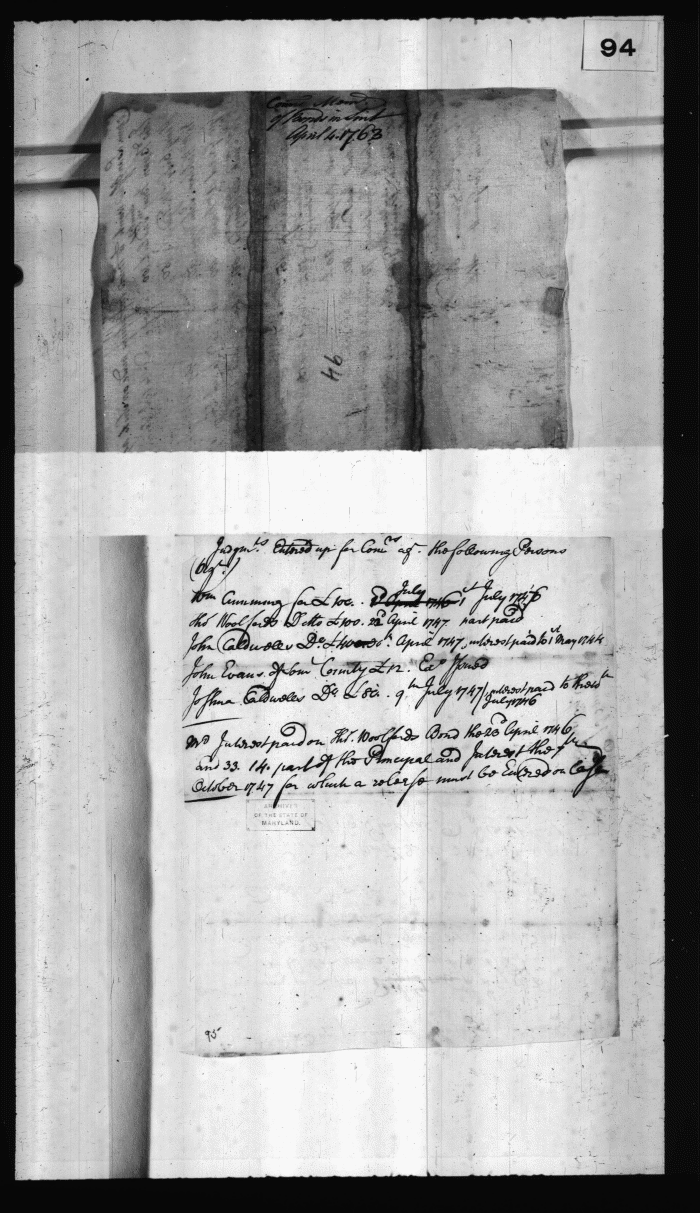 94
April 4. 1763
46
Judgmts. Entered up for Comrs agt. the following Persons
(Vizt.)
Wm Cumming for £100. July 1st July 1746
Thos Woolfords Ditto £100. 23d April 1747 part paid
John Caldwells Do. April 1747, interest paid to 1st May 1744
John Evans of County £12. Exa Issued
Joshua Caldwells Do £80. 9th July 1747 / interest paid to the
July 1746
Md Interest paid on Thos. Woolfords Bond the 23d April 1746
and 33. 14. part of the Principal and Interest the 7th
October 1747 for which a release must be Entered on
ARCHIVES
OF THE STATE OF
MARYLAND.
95